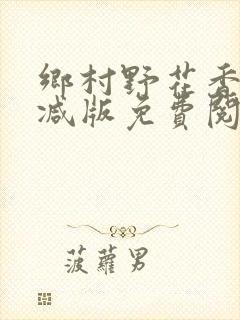 鄉村野花香
减版免費閱
菠蘿男